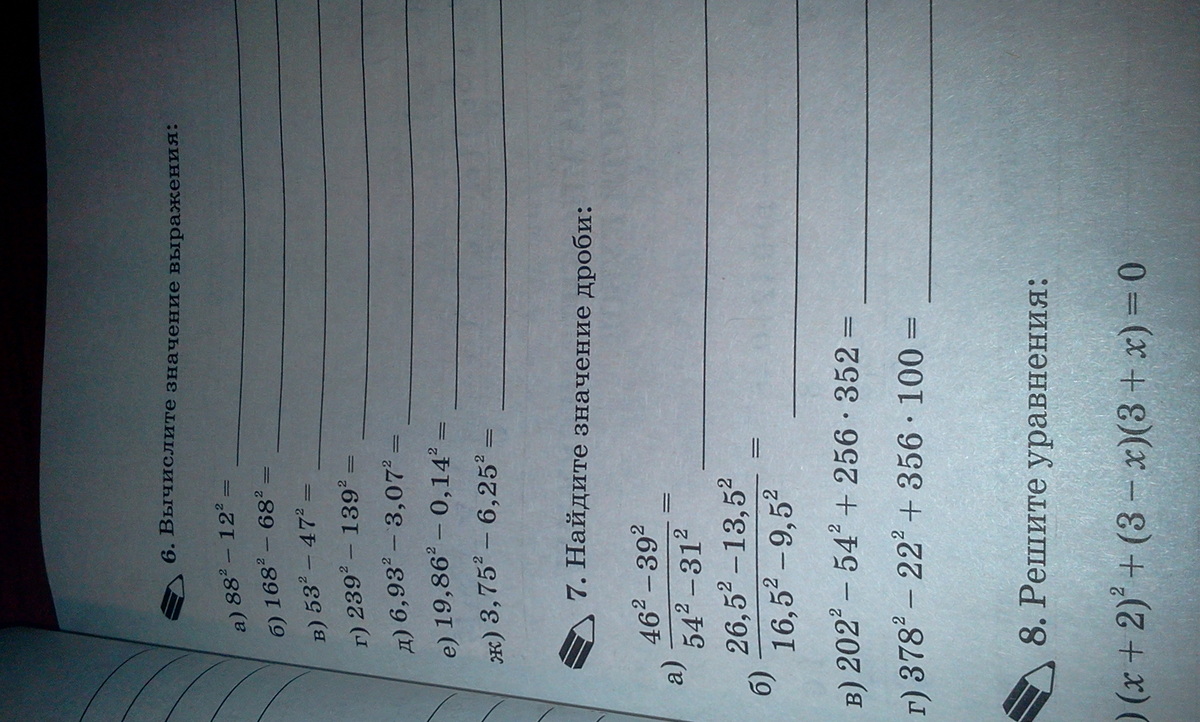 6. Вычислите значение выражения:
а) 88² – 12² =
б) 168² – 68² =
в) 53² – 47² =
г) 239² – 139² =
д) 6,93² – 3,07² =
е) 19,86² – 0,14² =
ж) 3,75² – 6,25² =
7. Найдите значение дроби:
а) (46² – 39²)/(54² – 31²) =
б) (26,5² – 13,5²)/(16,5² – 9,5²) =
в) 202² – 54² + 256 · 352 =
г) 378² – 22² + 356 · 100 =
8. Решите уравнения:
) (x + 2)² + (3 – x)(3 + x) = 0